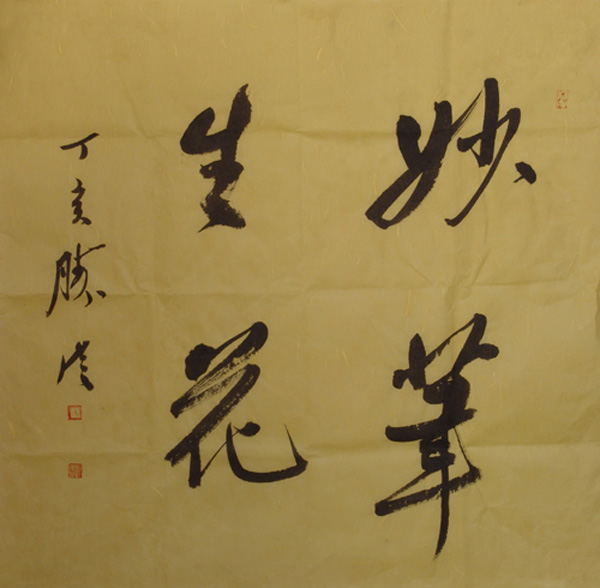 妙筆
生花
丁亥勝